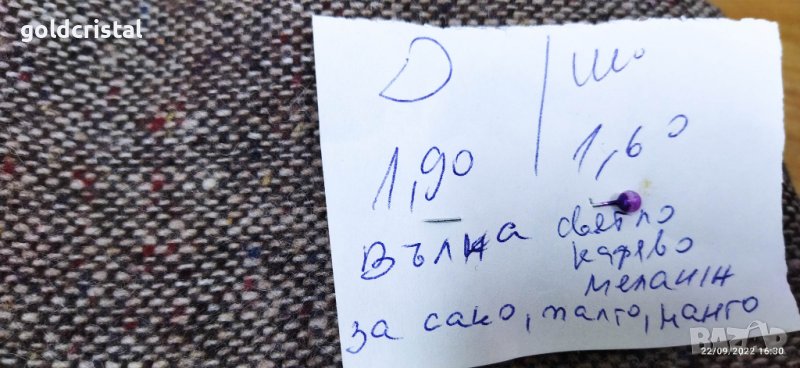 goldcristal
D / ш.
1,90 1,60
Вълна светло
кафяво
меланж
за сако, палто, манто
BAZAR
22/09/2022 16:30